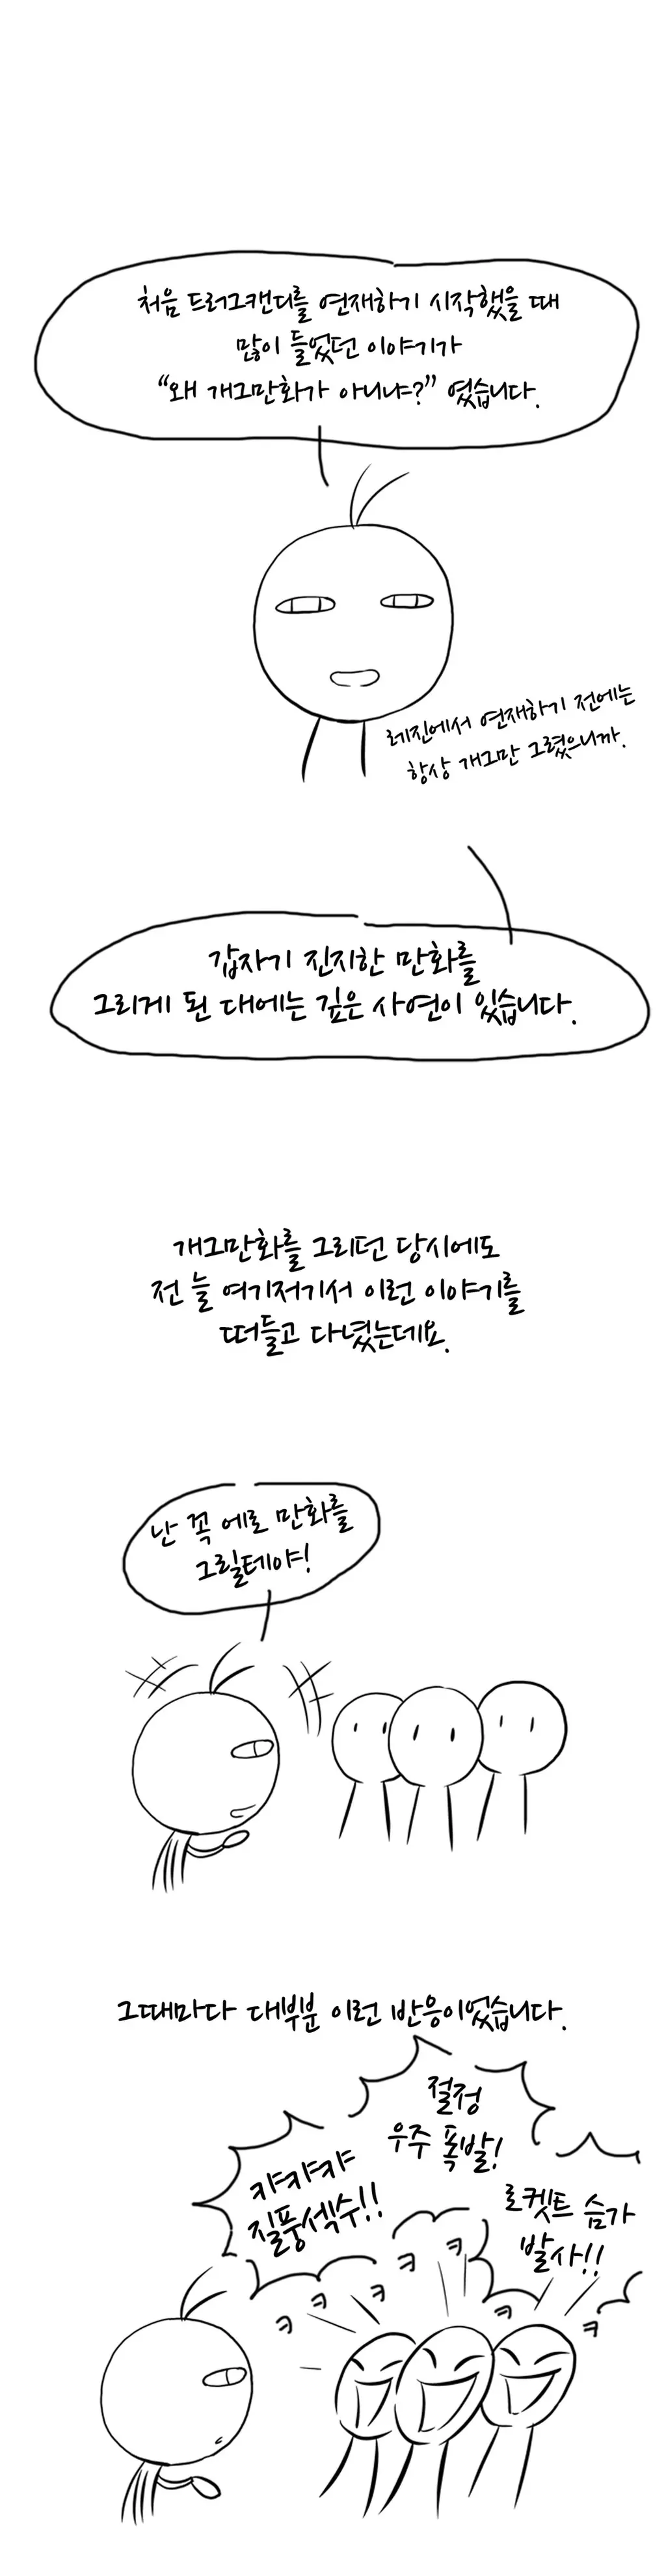 처음 드러그캔디를 연재하기 시작했을 때
많이 들었던 이야기가
“왜 개그만화가 아니냐?” 였습니다.
레진에서 연재하기 전에는
항상 개그만 그렸으니까.
갑자기 진지한 만화를
그리게 된 대에는 깊은 사연이 있습니다.
개그만화를 그리던 당시에도
전 늘 여기저기서 이런 이야기를
떠들고 다녔는데요.
난 꼭 에로 만화를
그릴테야!
그때마다 대부분 이런 반응이었습니다.
절정
우주 폭발!
캬캬캬캬
질풍섹수!!
로켓트 슴가
발사!!
ㅋ
ㅋ
ㅋ
ㅋ
ㅋ
ㅋ
ㅋ